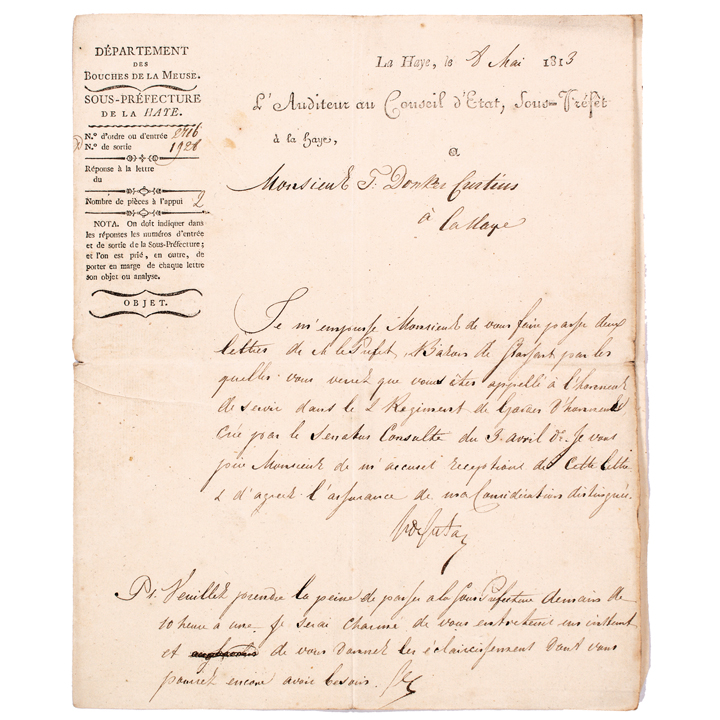 DÉPARTEMENT
DES
BOUCHES DE LA MEUSE.
SOUS-PRÉFECTURE
DE LA HAYE.
N.º d'ordre ou d'entrée 2716
N.º de sortie 1928
Réponse à la lettre
du
Nombre de pièces à l'appui 2
NOTA. On doit indiquer dans
les réponses les numéros d'entrée
et de sortie de la Sous-Préfecture;
et l'on est prié, en outre, de
porter en marge de chaque lettre
son objet ou analyse.
OBJET.
La Haye, le 8 Mai 1813
L'Auditeur au Conseil d'Etat, Sous-Préfèt
à la haye,
a
Monsieur F. Donker Curtius
à La Haye
Je m'empresse Monsieur de vous faire passer deux
lettres de M le Prefet, Baron de Stassart par les
quelles vous verrez que vous êtes appellé à l'honneur
de servir dans le 2 Regiment de Gardes d'honneur
Créé par le Senatus Consulte du 3 avril dr. Je vous
prie Monsieur de m'accuser reception de cette lettre
& d'agreer l'assurance de ma Consideration distinguée.
Ps. Veuillez prendre la peine de passer a la Sous Prefecture demain de
10 heure à une je serai charmé de vous entretenir un instant
et de vous donner les éclaircissement dont vous
pourriez encore avoir besoin.